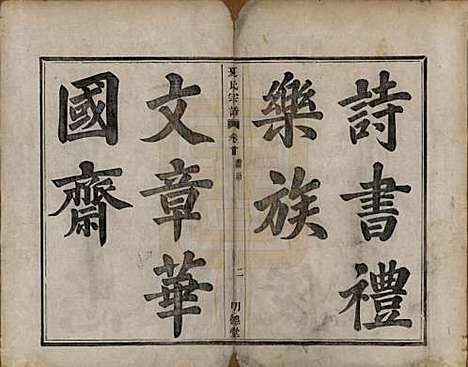 詩書禮
樂族
夏氏宗譜 卷首
二
明德堂
文章華
國齋